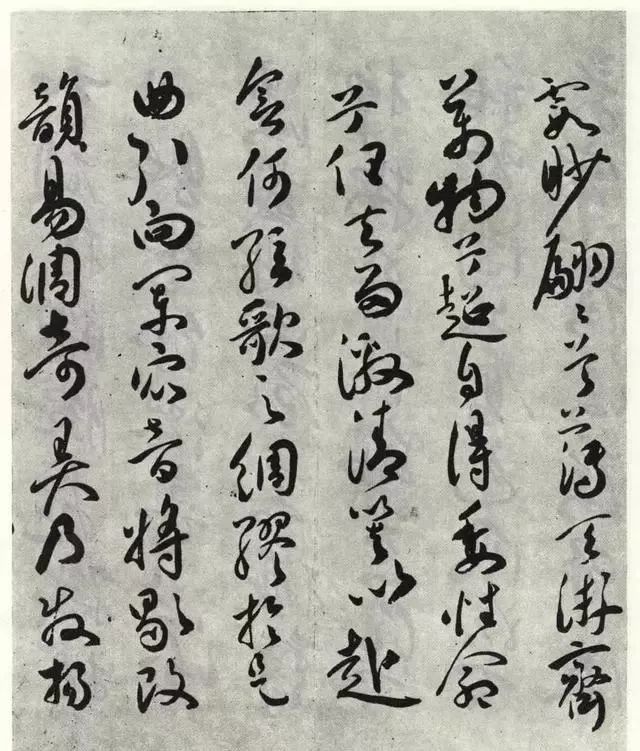 霞眇翩〻兮薄天游齊
萬物兮超自得委性命
兮任去留激清響以赴
會何絃歌之綢繆於是
曲引向闌衆音將歇改
韻易調奇弄乃發揚